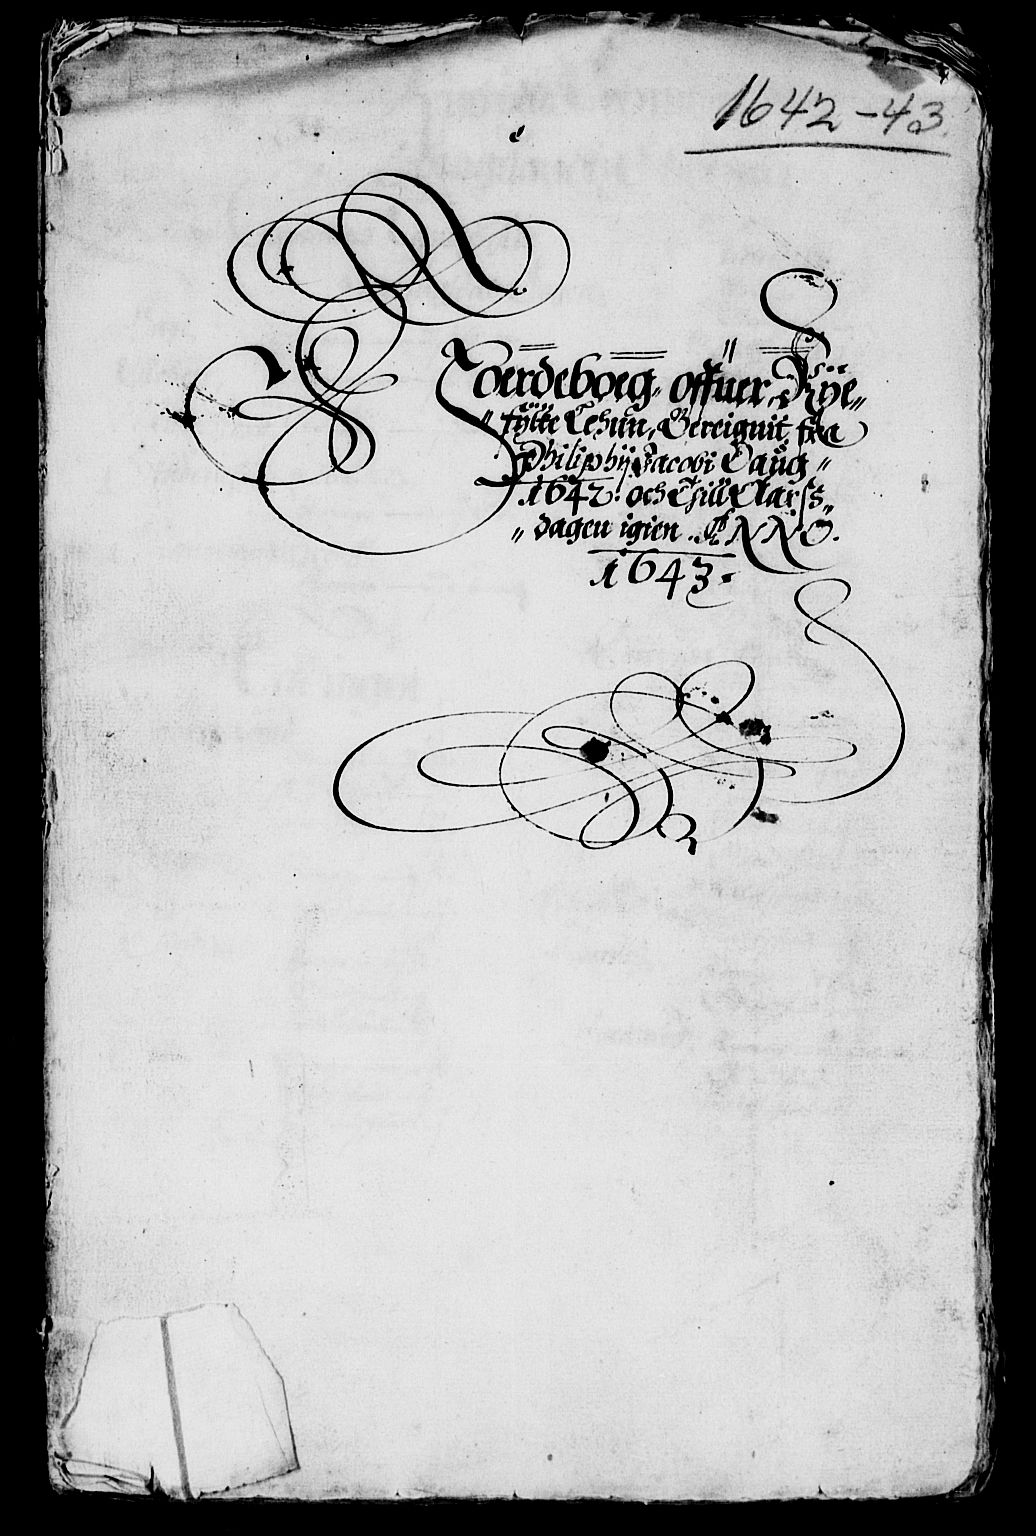 1642-43.
Joerdeboeg, offuer, Rÿe„
„fÿlke Lehnn, Bereignit, fra
Philiphij Jacobi Daŭg „
1642. och Thill Aarss„
„ dagen igien. ANNO.
1643.